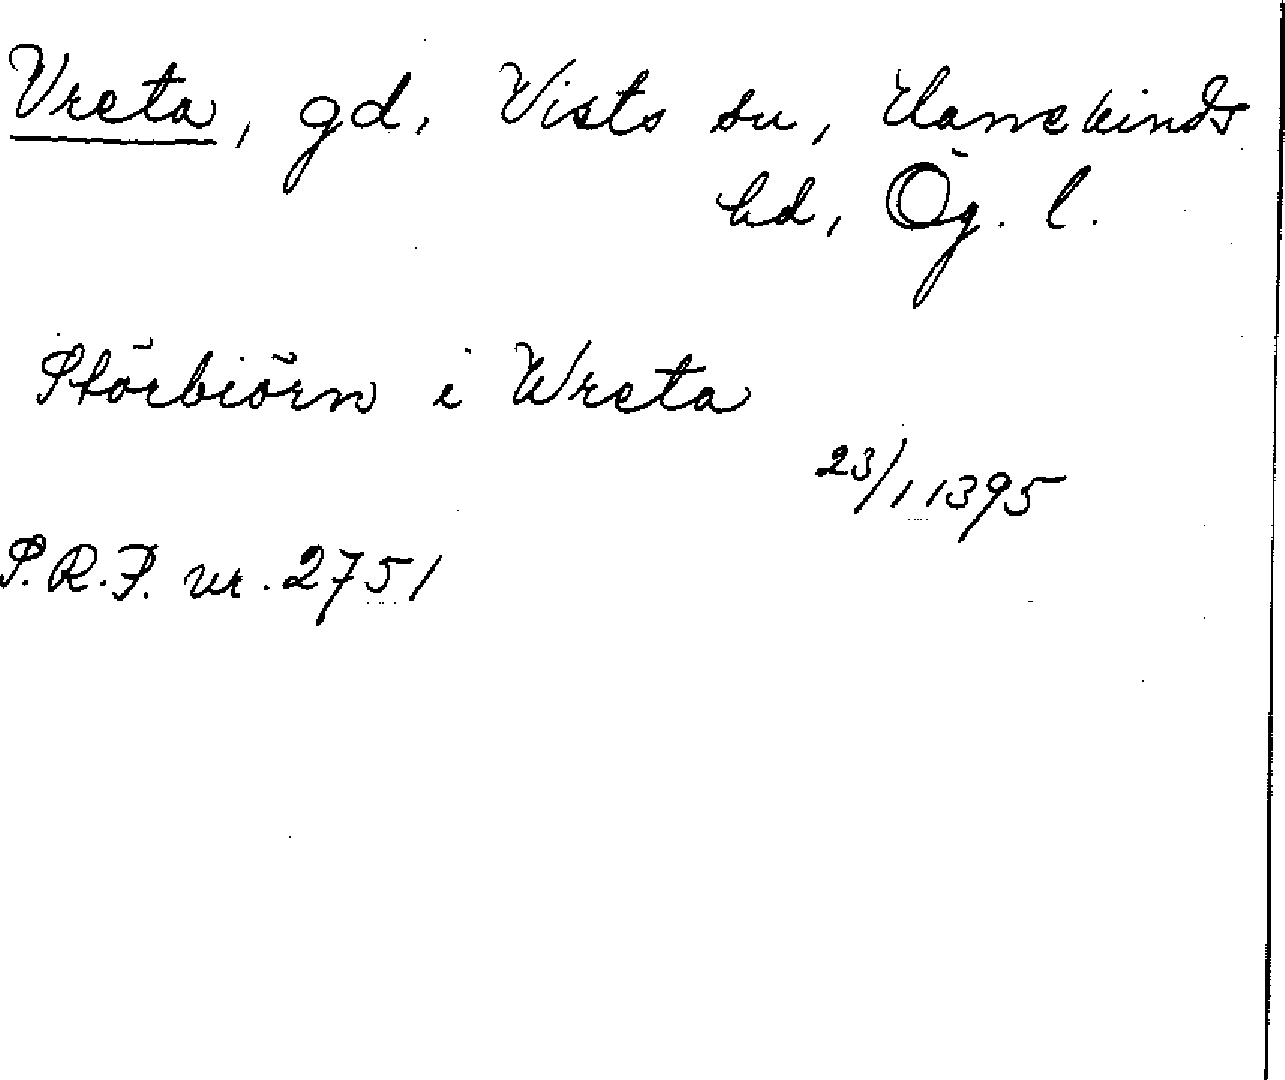 Vreta, gd, Vists sn, Hanekinds
hd, Ög. l.
Störbiörn i Wreta
23/1 1395
S.R.P. nr. 2751